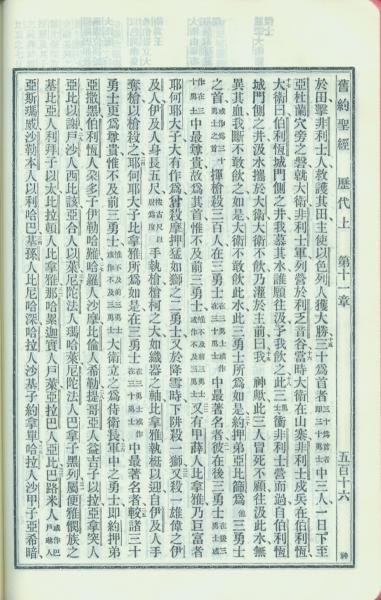 舊約聖經 歷代上 第十一章 五百十六 神
於田擊非利士人救護其田主使以色列人獲大勝三十爲首者中三人一日下至
亞杜蘭穴旁之磐就大衛非利士軍列營於利乏音谷當時大衛在山寨非利士戍兵在伯利恆
大衛曰伯利恆城門側之井我慕其水誰願往汲予我飲之此三勇士衝非利士營而過自伯利恆
城門側之井汲水攜於大衛大衛不飲乃灌於主前曰我 神歟此三人冒死不顧往汲此水無
異其血我斷不敢飲之如是大衛不敢飲此水此三勇士所爲如是約押弟亞比篩爲他三勇士
之首揮槍殺三百人在三勇士中最著名者彼在後三勇士
中最尊貴故爲其首惟不及前三勇士又有甲薛人比拿雅乃巨富者
耶何耶大子大有作爲曾殺摩押猛如獅之二勇士又於降雪時下阱殺一獅又殺一雄偉之伊
及人伊及人身長五尺手執槍槍柯之大如織器之軸比拿雅執梃以迎自伊及人手
奪槍以槍殺之耶何耶大子比拿雅所爲如是在三勇士中最著名者較諸三十
勇士更爲尊貴惟不及前三勇士大衛立之爲侍衛長軍中之勇士即約押弟
亞撒黑伯利恆人朶多子伊勒哈難哈羅人沙摩比倫人希勒提哥亞人益吉子以拉亞拿突人
亞比以謝戶沙人西比該亞合人以萊尼陀法人瑪哈萊尼陀法人巴拿子黑列屬便雅憫族之
基比亞人利拜子以太比拉頓人比拿雅那哈累迦實人戶萊亞拉巴人亞比巴路米人
亞斯瑪威沙勒本人以利哈巴基孫人比尼哈深哈拉人沙基子約拿單哈拉人沙甲子亞希暗